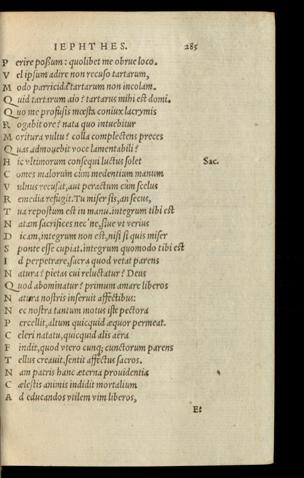 IEPHTHES. 285
P erire poßum: quolibet me obrue loco.
V el ipsum adire non recuso tartarum,
M odo parricida tartarum non incolam.
Q uid tartarum aio? tartarus mihi est domi.
Q uo me profusis mœsta coniux lacrymis
R ogabit ore? nata quo intuebitur
M oritura vultu? colla complectens preces
Q uas admouebit voce lamentabili?
H ic vltimorum consequi luctus solet Sac.
C omes malorum cùm medentium manum
V ulnus recusat, aut peractum cùm scelus
R emedia refugit. Tu miser sis, an secus,
T ua repostum est in manu. integrum tibi est
N atam sacrifices nec'ne, siue vt verius
D icam, integrum non est, nisi si quis miser
S ponte esse cupiat. integrum quomodo tibi est
I d perpetrare, sacra quod vetat parens
N atura? pietas cui reluctatur? Deus
Q uod abominatur? primum amare liberos
N atura nostris inseruit affectibus:
N ec nostra tantum motus iste pectora
P ercellit, altum quicquid æquor permeat.
C eleri natatu, quicquid alis aëra
F indit, quod vtero cunq; cunctorum parens
T ellus creauit, sentit affectus sacros.
N am patris hanc æterna prouidentia
C ælestis animis indidit mortalium
A d educandos vtilem vim liberos,
Et